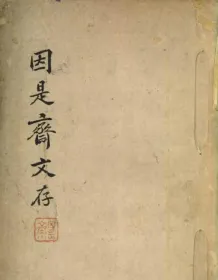 因是齋文存